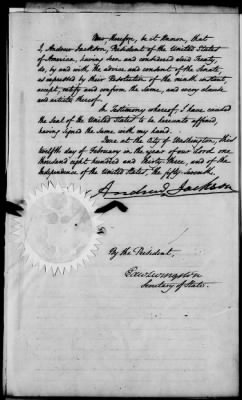 Now, therefore, be it known, that
I, Andrew Jackson, President of the United States
of America, having seen and considered said Treaty,
do, by and with the advice and consent of the Senate,
as expressed by their Resolution of the ninth instant,
accept, ratify and confirm the same, and every clause
and article thereof.
In Testimony whereof, I have caused
the seal of the United States to be hereunto affixed,
having signed the same with my hand.
Done at the City of Washington, this
twelfth day of February in the year of our Lord one
thousand eight hundred and thirty three, and of the
Independence of the United States, the fifty seventh.
Andrew Jackson
By the President,
Edw. Livingston
Secretary of State.